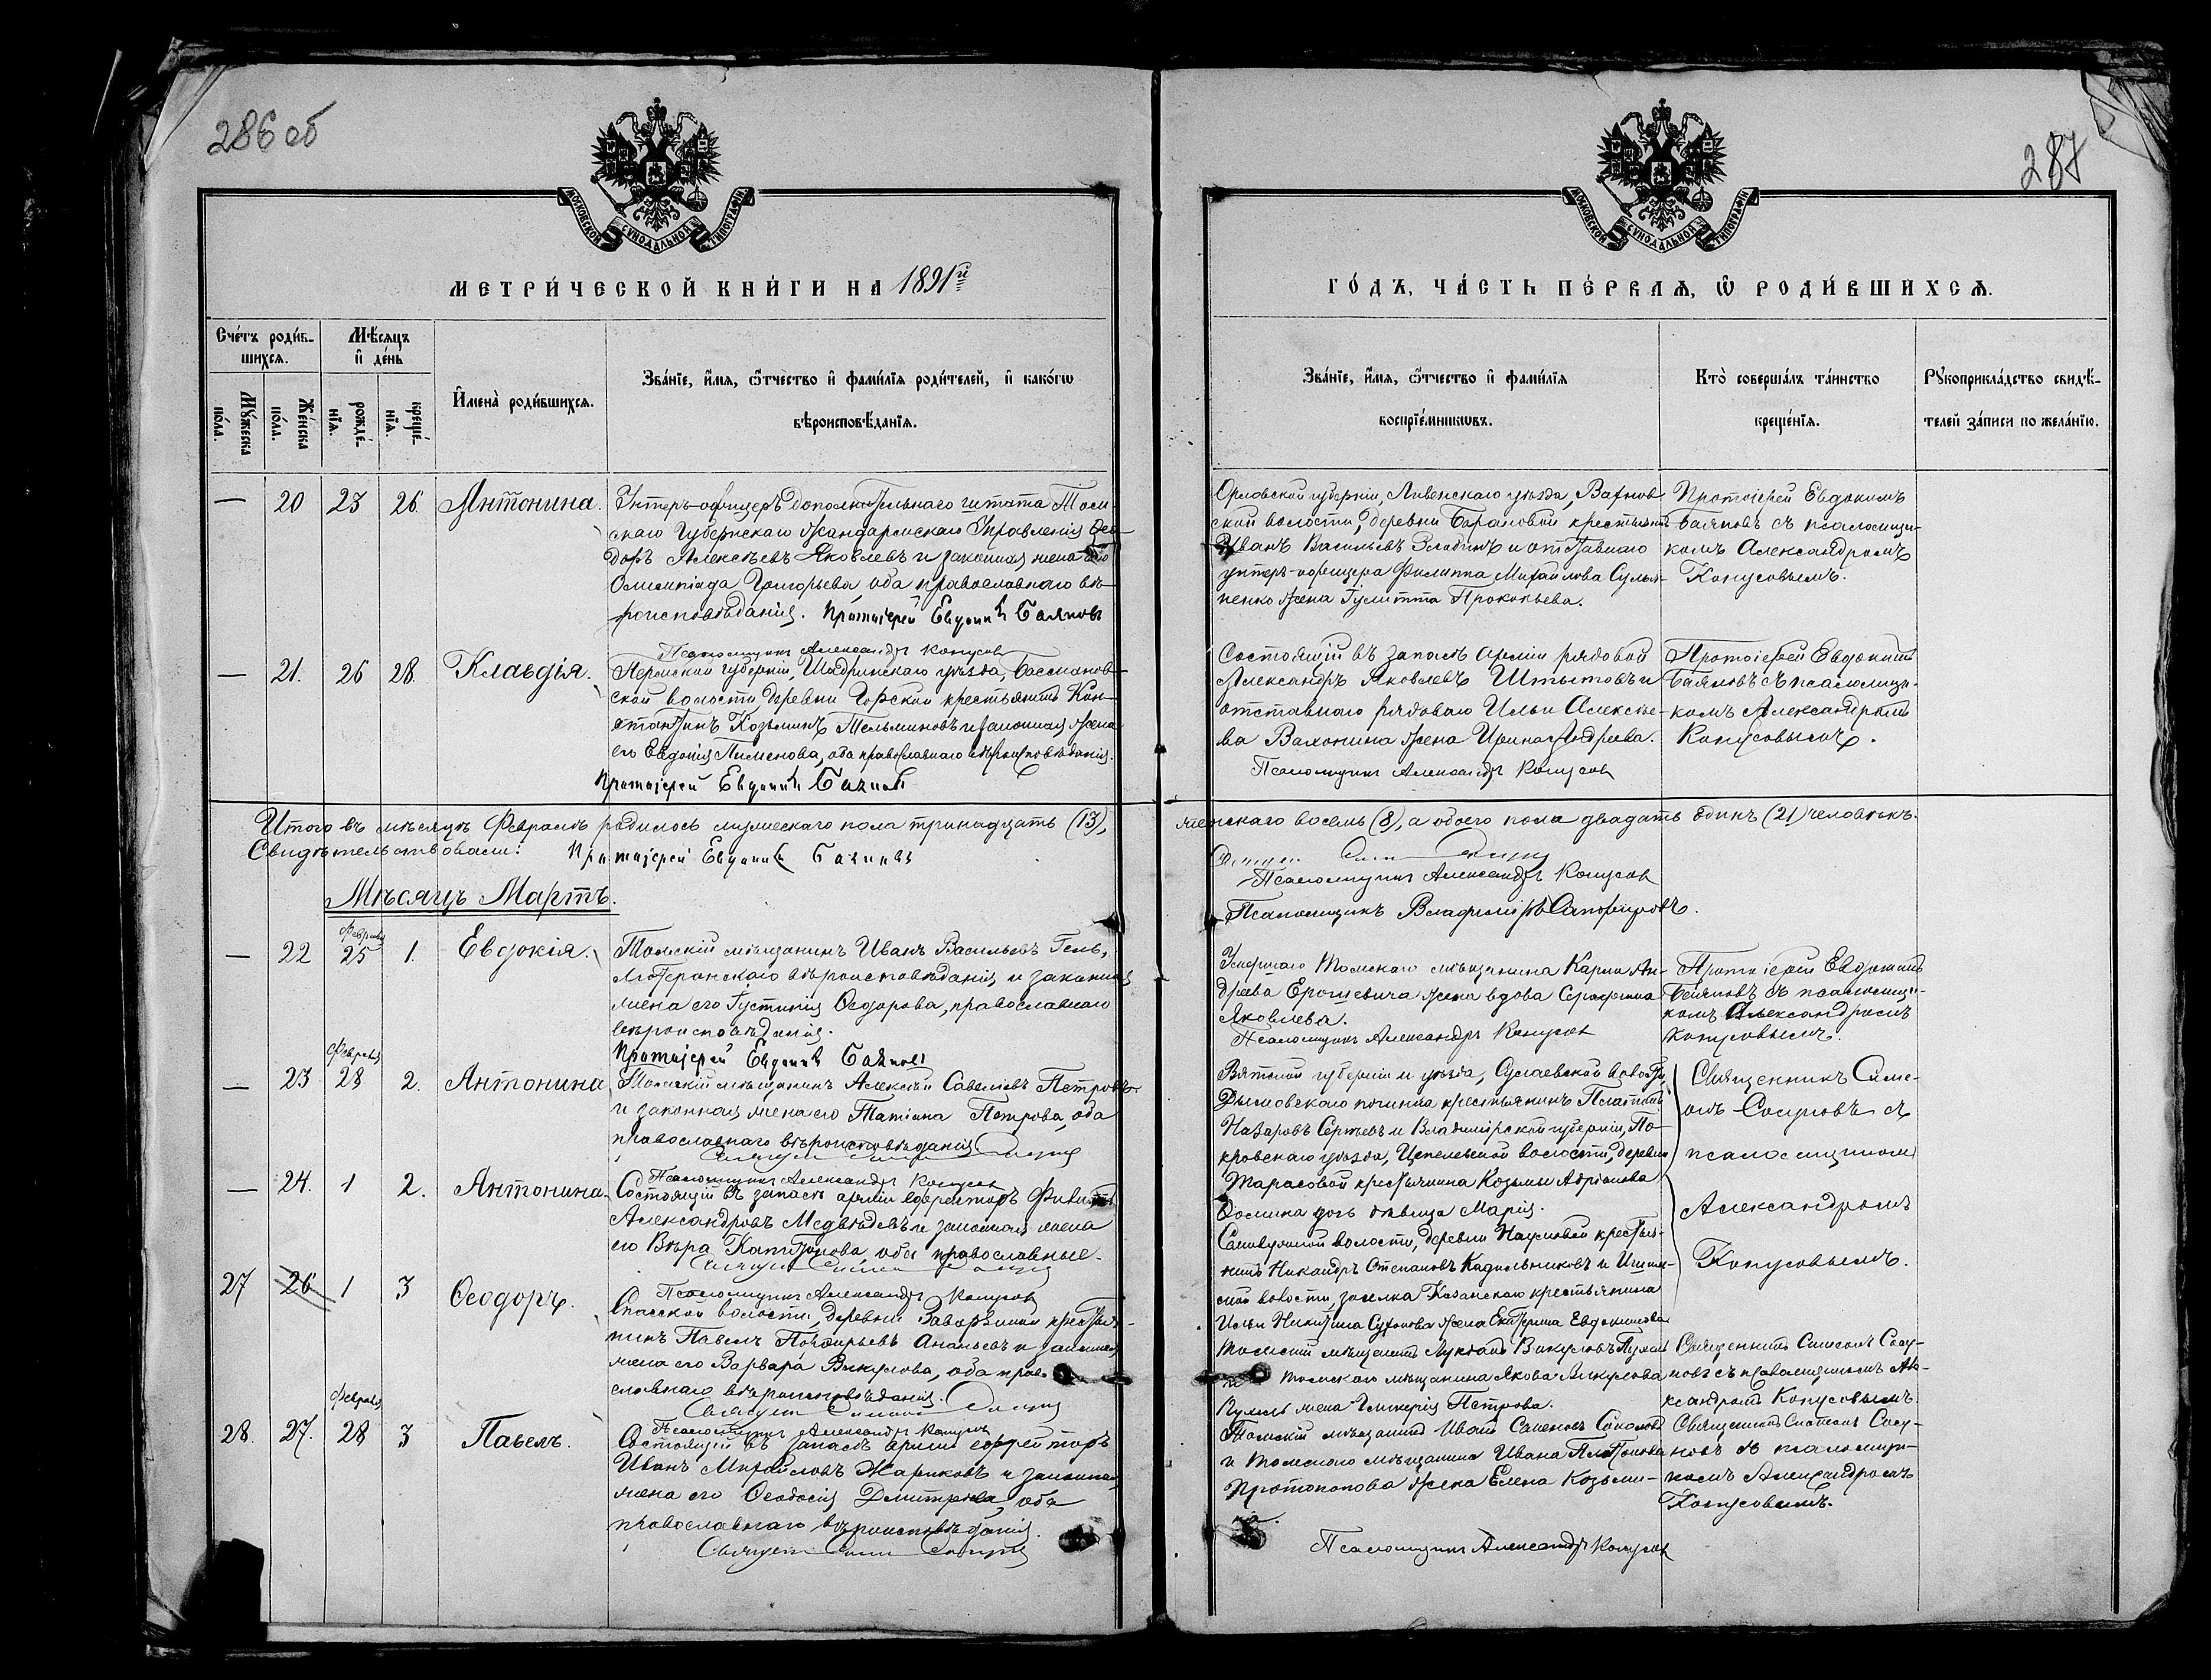 286 об
287
МОСКОВСКОЙ СѴНОДАЛЬНОЙ ТИПОГРАФІИ
МОСКОВСКОЙ СѴНОДАЛЬНОЙ ТИПОГРАФІИ
МЕТРИ́ЧЕСКОЙ КНИ́ГИ НА 1891й
ГО́ДЪ, ЧА́СТЬ ПЕ́РВАѦ, Ѽ РОДИ́ВШИХСѦ.
Сче́тъ роди́в-
шихсѧ.
Мѣ́сѧцъ
и҆ де́нь
Мꙋ́жеска
по́ла.
Же́нска
по́ла.
рожде́-
нїѧ.
креще́-
нїѧ.
И҆мена̀ роди́вшихсѧ.
Зва́нїе, и҆́мѧ, ѻ҆́тчество и҆ фамѝлїѧ роди́телей, и҆ како́гѡ
вѣроисповѣ́данїѧ.
Зва́нїе, и҆́мѧ, ѻ҆́тчество и҆ фамѝлїѧ
воспрїе́мникѡвъ.
Кто̀ соверша́лъ та́инство
креще́нїѧ.
Рꙋкоприкла́дство свидѣ́-
телей за́писи по жела́нїю.
— 20 23 26. Антонина.
Унтеръ-офицеръ дополнительнаго штата Том-
скаго Губернскаго Жандармскаго Управленія Ѳео-
доръ Алексѣевъ Яковлевъ и законная жена его
Олимпіада Григорьева, оба православнаго вѣ-
роисповѣданія. Протоіерей Евдокимъ Баяновъ
Псаломщикъ Александръ Конусовъ
Орловской губерніи, Ливенскаго уѣзда,
ской волости, деревни Барановой крестьянинъ
Иванъ Васильевъ и отставнаго
унтеръ-офицера Филиппа Михайлова
ненко жена Іулитта Прокопьева.
Протоіерей Евдокимъ
Баяновъ съ псаломщи-
комъ Александромъ
Конусовымъ.
— 21. 26 28. Клавдія.
Пермской губерніи, Шадринскаго уѣзда, Басманов-
ской волости деревни крестьянинъ Кон-
стантинъ Козьминъ и законная жена
его Евдокія Пименова, оба православнаго вѣроисповѣданія.
Протоіерей Евдокимъ Баяновъ
Состоящій въ запасѣ арміи рядовой
Александръ Яковлевъ Штытовъ и
отставнаго рядоваго Ильи Алексѣе-
ва Вахонина жена Ирина Андреева.
Псаломщикъ Александръ Конусовъ
Протоіерей Евдокимъ
Баяновъ съ псаломщи-
комъ Александромъ
Конусовымъ.
Итого въ мѣсяцѣ Февралѣ родилось мужескаго пола тринадцать (13),
женскаго восемь (8), а обоего пола двадцать одинъ (21) человѣкъ.
Свидѣтельствовали: Протоіерей Евдокимъ Баяновъ
Псаломщикъ Александръ Конусовъ
Псаломщикъ Владиміръ
Мѣсяцъ Мартъ.
Февраля
— 22 25 1. Евдокія.
Томскій мѣщанинъ Иванъ Васильевъ
Лютеранскаго вѣроисповѣданія, и законная
жена его Іустинія Ѳеодорова, православнаго
вѣроисповѣданія.
Протоіерей Евдокимъ Баяновъ
Умершаго Томскаго мѣщанина Карпа Ан-
дреева Ерошевича жена вдова Серафима
Яковлева.
Псаломщикъ Александръ Конусовъ
Протоіерей Евдокимъ
Баяновъ съ псаломщи-
комъ Александромъ
Конусовымъ.
Февраля
— 23 28 2. Антонина
Томскій мѣщанинъ Алексѣй Савельевъ Петровъ
и законная жена его Татіана Петрова, оба
православнаго вѣроисповѣданія
Псаломщикъ Александръ Конусовъ
Вятской губерніи и уѣзда, волости,
починка крестьянинъ Платонъ
Назаровъ Сергѣевъ и Владимірской губерніи, По-
кровскаго уѣзда, волости, деревни
Тарасовой крестьянина Козьмы Адріанова
дочь дѣвица Марія.
Священникъ Симе-
онъ Сосуновъ съ
псаломщикомъ
Александромъ
Конусовымъ.
— 24. 1 2. Антонина.
Состоящій въ запасѣ арміи ефрейторъ
Александровъ Медвѣдевъ и законная жена
его Вѣра Капитонова, оба православные.
Псаломщикъ Александръ Конусовъ
волости, деревни Наумовой крестья-
нинъ Никандръ Степановъ Кадильниковъ и Ишим-
ской волости, заселка Казанскаго крестьянина
Ильи Никитина жена Екатерина Евдокимова
27 26 1 3 Ѳеодоръ.
Спасской волости, деревни крестья-
нинъ Павелъ Ананьевъ и законная
жена его Варвара Викулова, оба право-
славнаго вѣроисповѣданія.
Псаломщикъ Александръ Конусовъ
Томскій мѣщанинъ Викуловъ
и Томскаго мѣщанина Якова Викулова
жена Гликерія Петрова.
Священникъ Симеонъ Сосу-
новъ съ псаломщикомъ Але-
ксандромъ Конусовымъ
Февраля
28. 27. 28 3 Павелъ.
Состоящій въ запасѣ арміи ефрейторъ
Иванъ Михайловъ Жариковъ и законная
жена его Ѳеодосія Дмитріева, оба
православнаго вѣроисповѣданія.
Томскій мѣщанинъ Иванъ Семеновъ Соколовъ
и Томскаго мѣщанина Ивана Платонова
Протопопова жена Елена Козьми-
на.
Псаломщикъ Александръ Конусовъ
Священникъ Симеонъ Сосу-
новъ съ псаломщи-
комъ Александромъ
Конусовымъ.